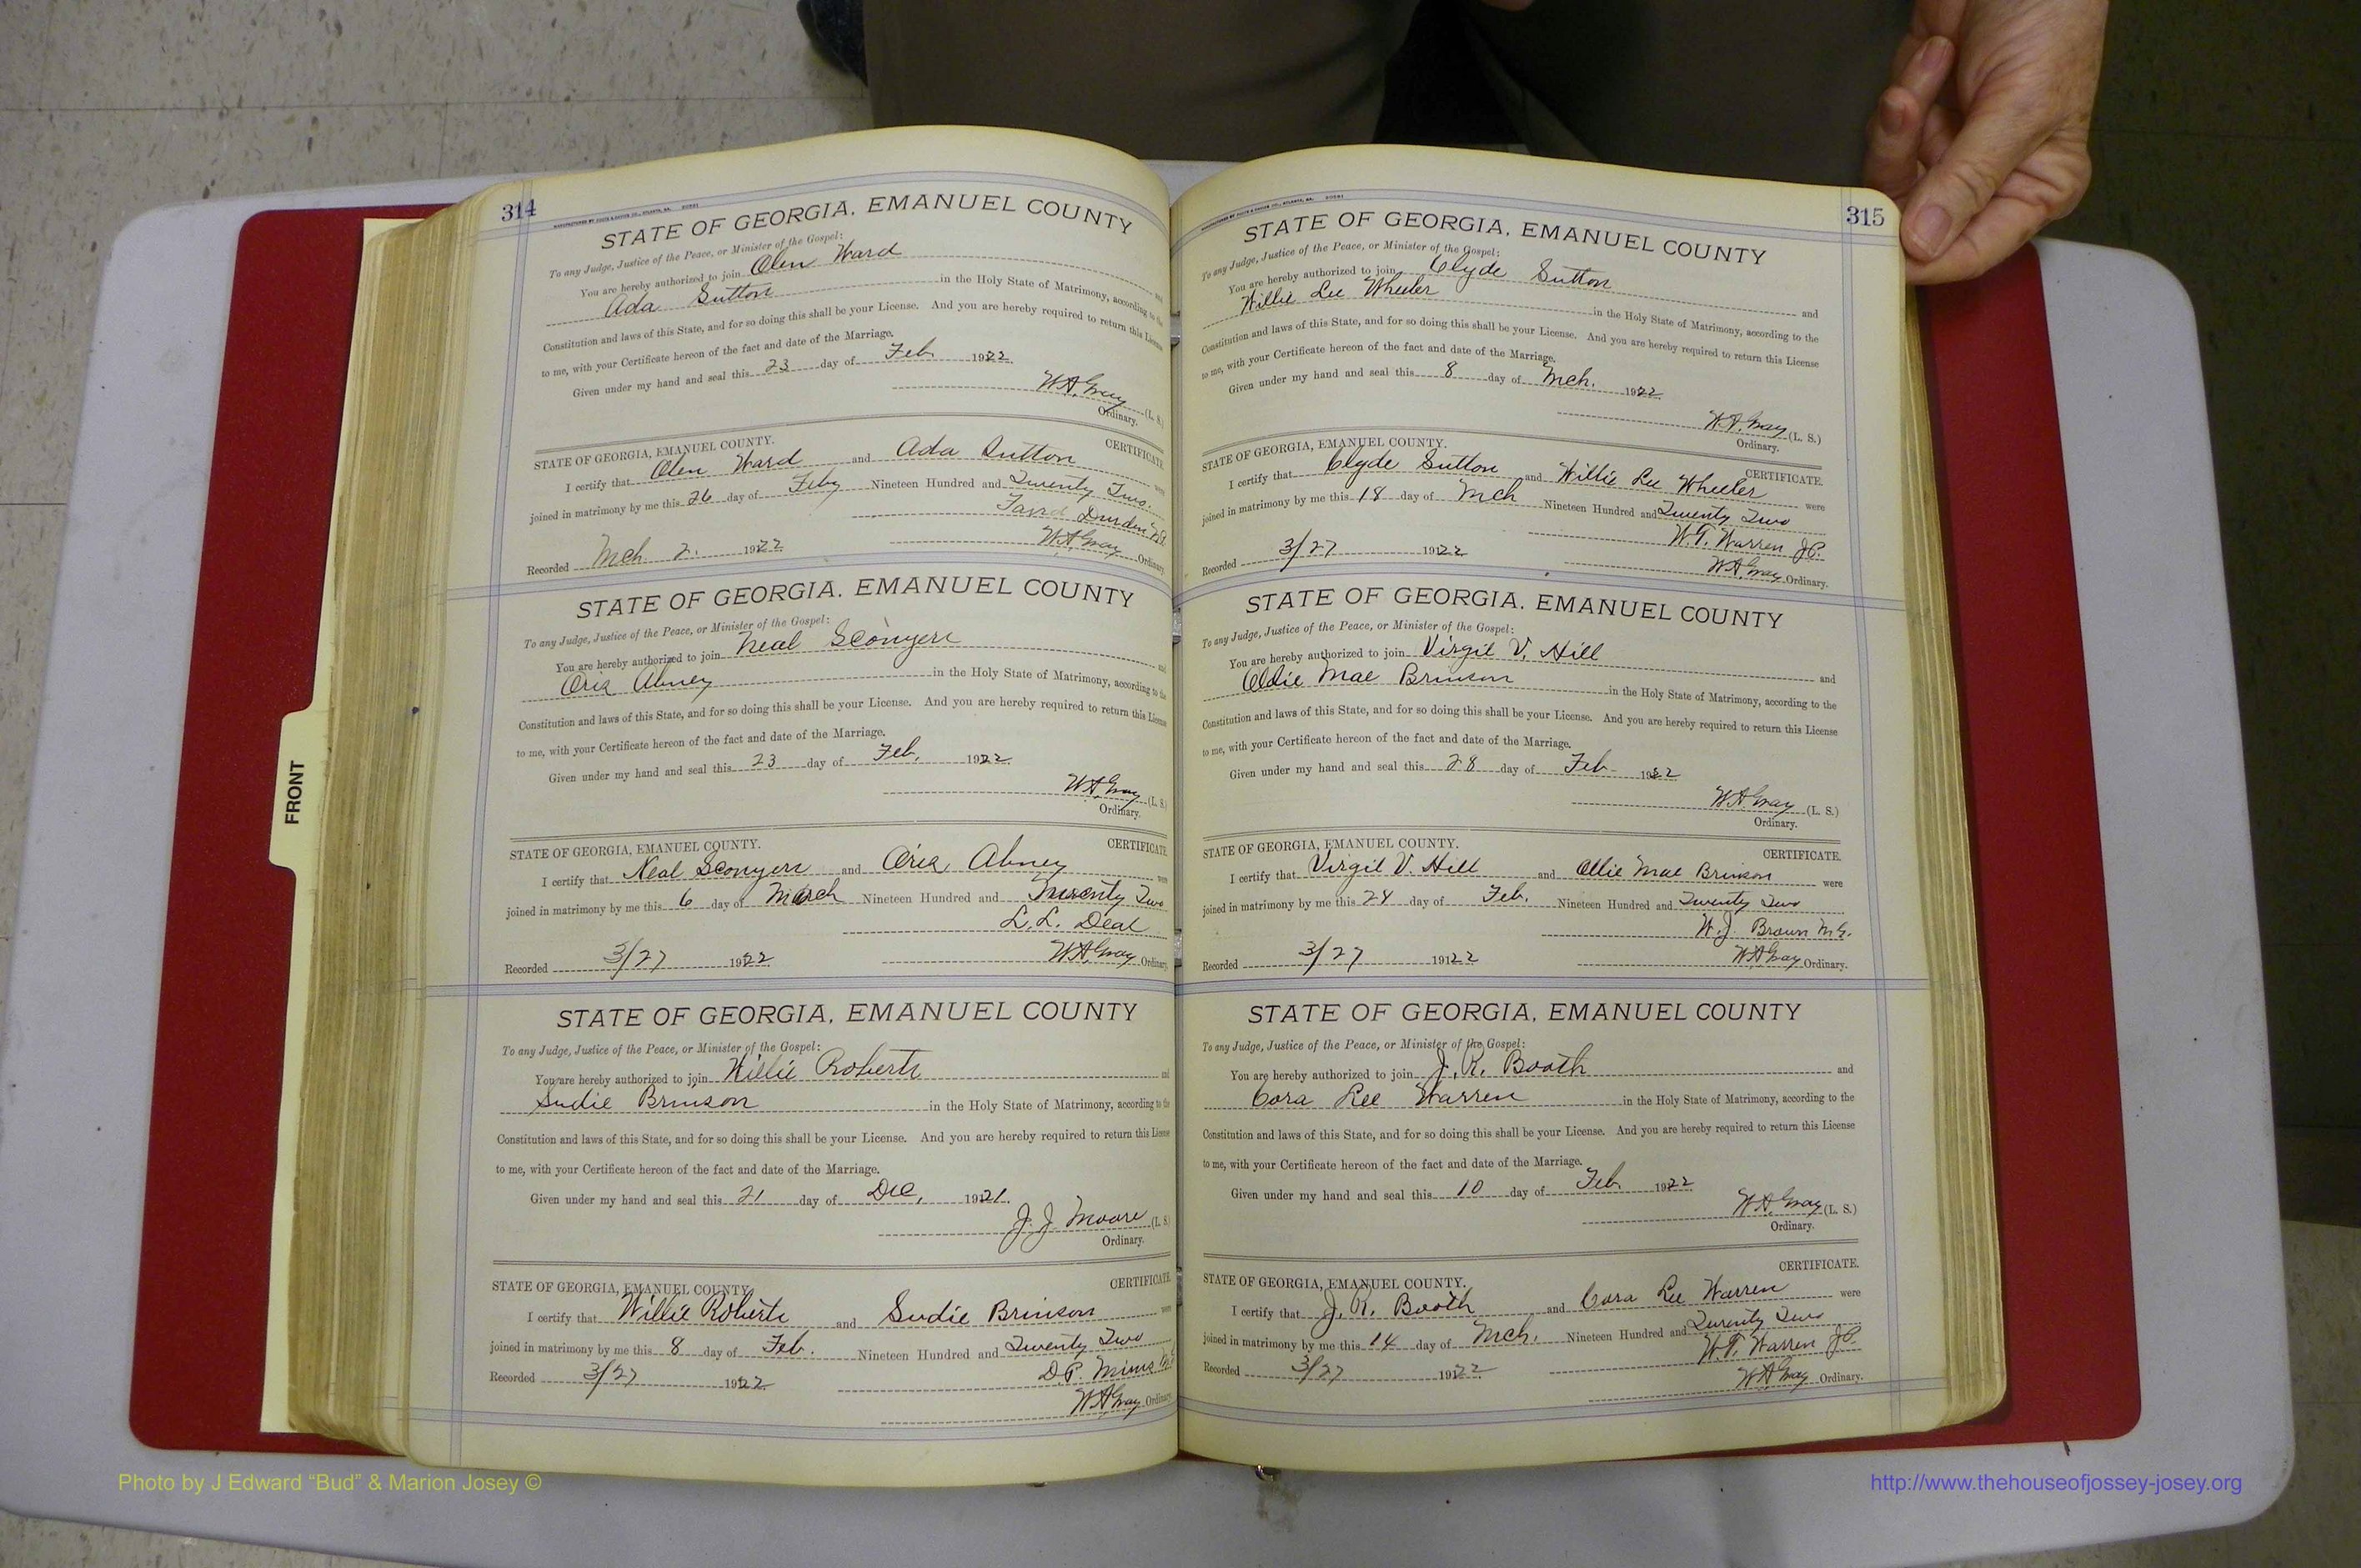 314
STATE OF GEORGIA, EMANUEL COUNTY
To any Judge, Justice of the Peace, or Minister of the Gospel:
You are hereby authorized to join Olen Ward and
Ada Sutton in the Holy State of Matrimony, according to the
Constitution and laws of this State, and for so doing this shall be your License. And you are hereby required to return this License
to me, with your Certificate hereon of the fact and date of the Marriage.
Given under my hand and seal this 23 day of Feb 1922
W.A. Gray (L. S.)
Ordinary.
STATE OF GEORGIA, EMANUEL COUNTY. CERTIFICATE
I certify that Olen Ward and Ada Sutton were
joined in matrimony by me this 26 day of Feby Nineteen Hundred and Twenty Two.
Durden
W.A. Gray Ordinary.
Recorded Mch. 2. 1922
STATE OF GEORGIA, EMANUEL COUNTY
To any Judge, Justice of the Peace, or Minister of the Gospel:
You are hereby authorized to join Neal Sconyers and
Abney in the Holy State of Matrimony, according to the
Constitution and laws of this State, and for so doing this shall be your License. And you are hereby required to return this License
to me, with your Certificate hereon of the fact and date of the Marriage.
Given under my hand and seal this 23 day of Feb. 1922
W.A. Gray (L. S.)
Ordinary.
STATE OF GEORGIA, EMANUEL COUNTY. CERTIFICATE.
I certify that Neal Sconyers and Abney were
joined in matrimony by me this 6 day of March Nineteen Hundred and Twenty Two
L. L. Deal
Recorded 3/27 1922 W.A. Gray Ordinary.
STATE OF GEORGIA, EMANUEL COUNTY
To any Judge, Justice of the Peace, or Minister of the Gospel:
You are hereby authorized to join Willie Roberts and
Sudie Brinson in the Holy State of Matrimony, according to the
Constitution and laws of this State, and for so doing this shall be your License. And you are hereby required to return this License
to me, with your Certificate hereon of the fact and date of the Marriage.
Given under my hand and seal this 21 day of Dec, 1921.
J. J. Moore (L. S.
Ordinary.
STATE OF GEORGIA, EMANUEL COUNTY. CERTIFICATE.
I certify that Willie Roberts and Sudie Brinson were
joined in matrimony by me this 8 day of Feb. Nineteen Hundred and Twenty Two
Recorded 3/27 1922 D.P. Mims
W.A. Gray Ordinary
315
STATE OF GEORGIA, EMANUEL COUNTY
To any Judge, Justice of the Peace, or Minister of the Gospel:
You are hereby authorized to join Clyde Sutton and
Willie Lee Wheeler in the Holy State of Matrimony, according to the
Constitution and laws of this State, and for so doing this shall be your License. And you are hereby required to return this License
to me, with your Certificate hereon of the fact and date of the Marriage.
Given under my hand and seal this 8 day of Mch. 1922
W.A. Gray (L. S.)
Ordinary.
STATE OF GEORGIA, EMANUEL COUNTY. CERTIFICATE.
I certify that Clyde Sutton and Willie Lee Wheeler were
joined in matrimony by me this 18 day of Mch Nineteen Hundred and Twenty Two
W.T. Warren J.P.
Recorded 3/27 1922 W.A. Gray Ordinary.
STATE OF GEORGIA, EMANUEL COUNTY
To any Judge, Justice of the Peace, or Minister of the Gospel:
You are hereby authorized to join Virgil V. Hill and
Ollie Mae Brinson in the Holy State of Matrimony, according to the
Constitution and laws of this State, and for so doing this shall be your License. And you are hereby required to return this License
to me, with your Certificate hereon of the fact and date of the Marriage.
Given under my hand and seal this 28 day of Feb 1922
W.A. Gray (L. S.)
Ordinary.
STATE OF GEORGIA, EMANUEL COUNTY. CERTIFICATE.
I certify that Virgil V. Hill and Ollie Mae Brinson were
joined in matrimony by me this day of Feb. Nineteen Hundred and Twenty Two
W. J. Brown M.G.
Recorded 3/27 1922 W.A. Gray Ordinary.
STATE OF GEORGIA, EMANUEL COUNTY
To any Judge, Justice of the Peace, or Minister of the Gospel:
You are hereby authorized to join J. R. Booth and
Cora Lee Warren in the Holy State of Matrimony, according to the
Constitution and laws of this State, and for so doing this shall be your License. And you are hereby required to return this License
to me, with your Certificate hereon of the fact and date of the Marriage.
Given under my hand and seal this 10 day of Feb. 1922
W.A. Gray (L. S.)
Ordinary.
CERTIFICATE.
STATE OF GEORGIA, EMANUEL COUNTY.
I certify that J. R. Booth and Cora Lee Warren were
joined in matrimony by me this 14 day of Mch. Nineteen Hundred and Twenty Two
W.T. Warren J.P.
Recorded 3/27 1922 W.A. Gray Ordinary.
FRONT
Photo by J Edward “Bud” & Marion Josey ©
http://www.thehouseofjossey-josey.org